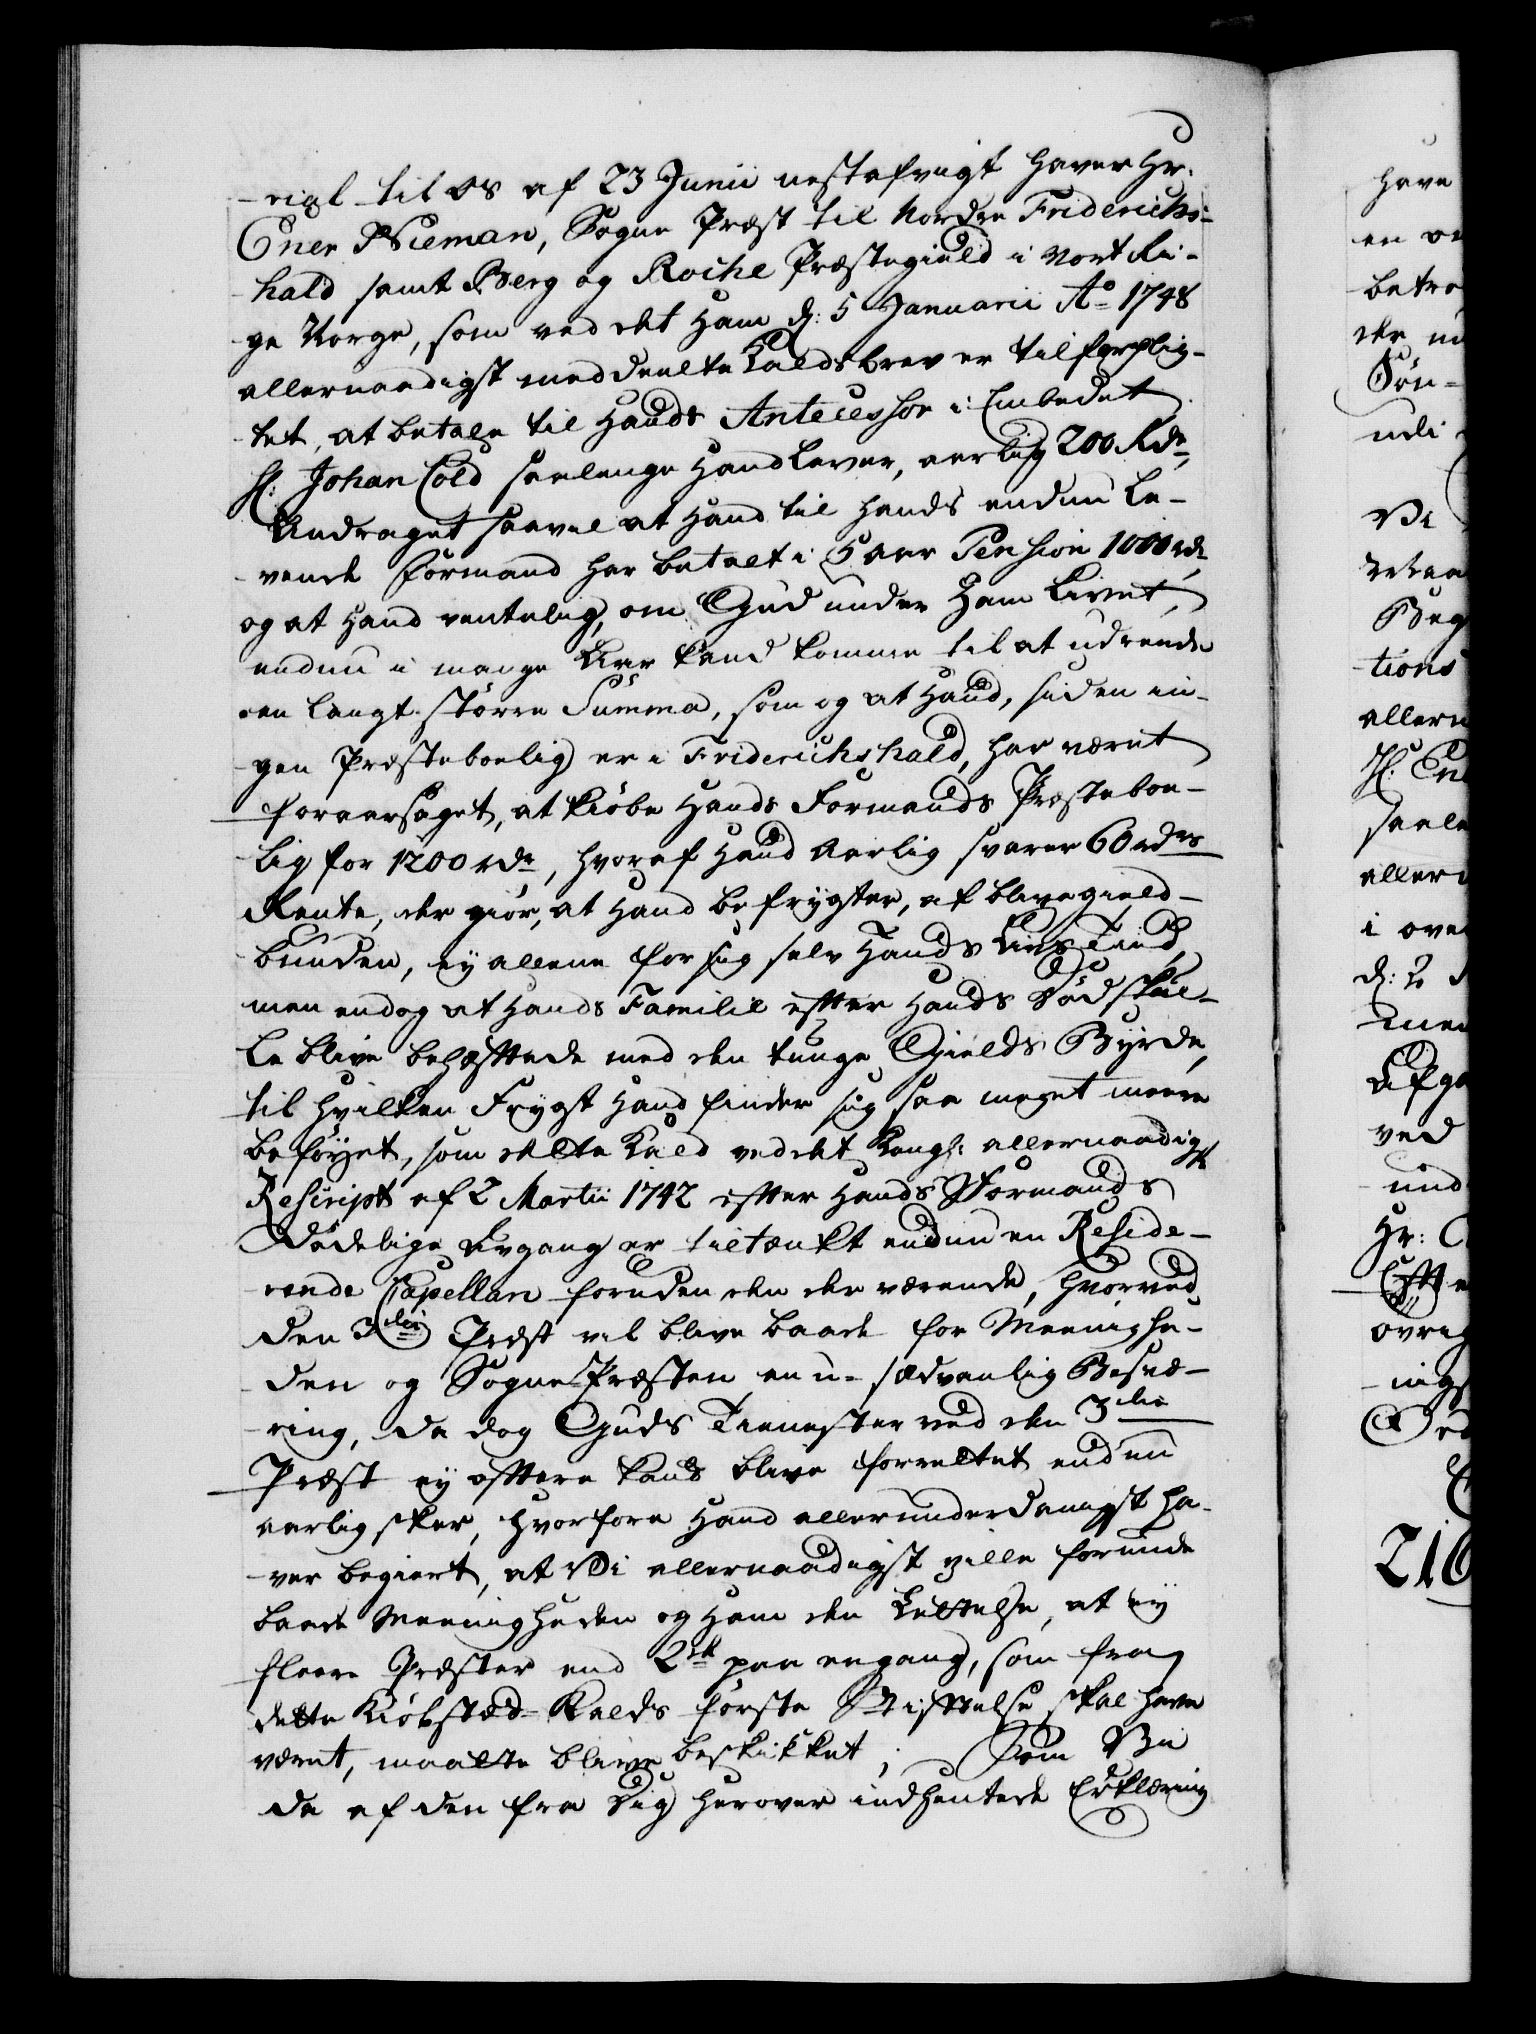 -rial til os af 23 Junii nestafvigt haver Hr.
Ener Nieman, Sogne Præst til Nordre Friderichs-
hald samt Berg og Rochе Præstegield i vort Ri-
ge Norge, som ved det ham d: 5 Januarii A° 1748
allernaadigst meddeelte Kaldsbrev er tilforplig-
tet, at betale til hands Antecessor i Embedet
Hr: Johan Cold saalenge hand lever, aarlig 200 Rdr,
Andraget saavel at hand til hands endnu le-
vende Formand har betalt i 5 aar Pension 1000 rdr
og at hand ventelig, om Gud under ham Livet,
endnu i mange Aar kand komme til at udreede
een langt større Summa, som og at hand, siden in-
gen Præsteboelig er i Friderichshald, har været
foraarsaget, at kiøbe hands Formands Præsteboe-
lig for 1200 rdr, hvoraf hand Aarlig svarer 60 rdrs
Rente, der giør, at hand befrygter, at blive gield-
bunden, ey allene for sig selv hands Livs Tiid,
men endog at hands Familie efter hands Død skul-
le blive behæftede med den tunge Gields Byrde,
til hvilken Frygt hand finder sig saa meget meere
beføyet, som dette Kald ved det Kongl: allernaadigst
Rescript af 2 Martii 1742 efter hands Formands
Dødelige Afgang er tiltænkt endnu en Reside-
rende Capellan foruden den der værende, hvorved
den 3die Præst vil blive baade for Meenighe-
den og SognePræsten en u-sædvanlig Besvæ-
ring, da dog Guds Tienester ved den 3die
Præst ey oftere kand blive forrettet end nu
aarlig skeer, hvorfore hand allerunderdanigst ha-
ver begiert, at Vi allernaadigst ville forunde
baade Meenigheden og ham den Lettelse, at ey
fleere Præster end 2de paa engang, som fra
dette Kiøbsted-Kalds første Stiftelse skal have
været, maatte blive beskikket; Som Vi
da af den fra dig herover indhentede Erklæring